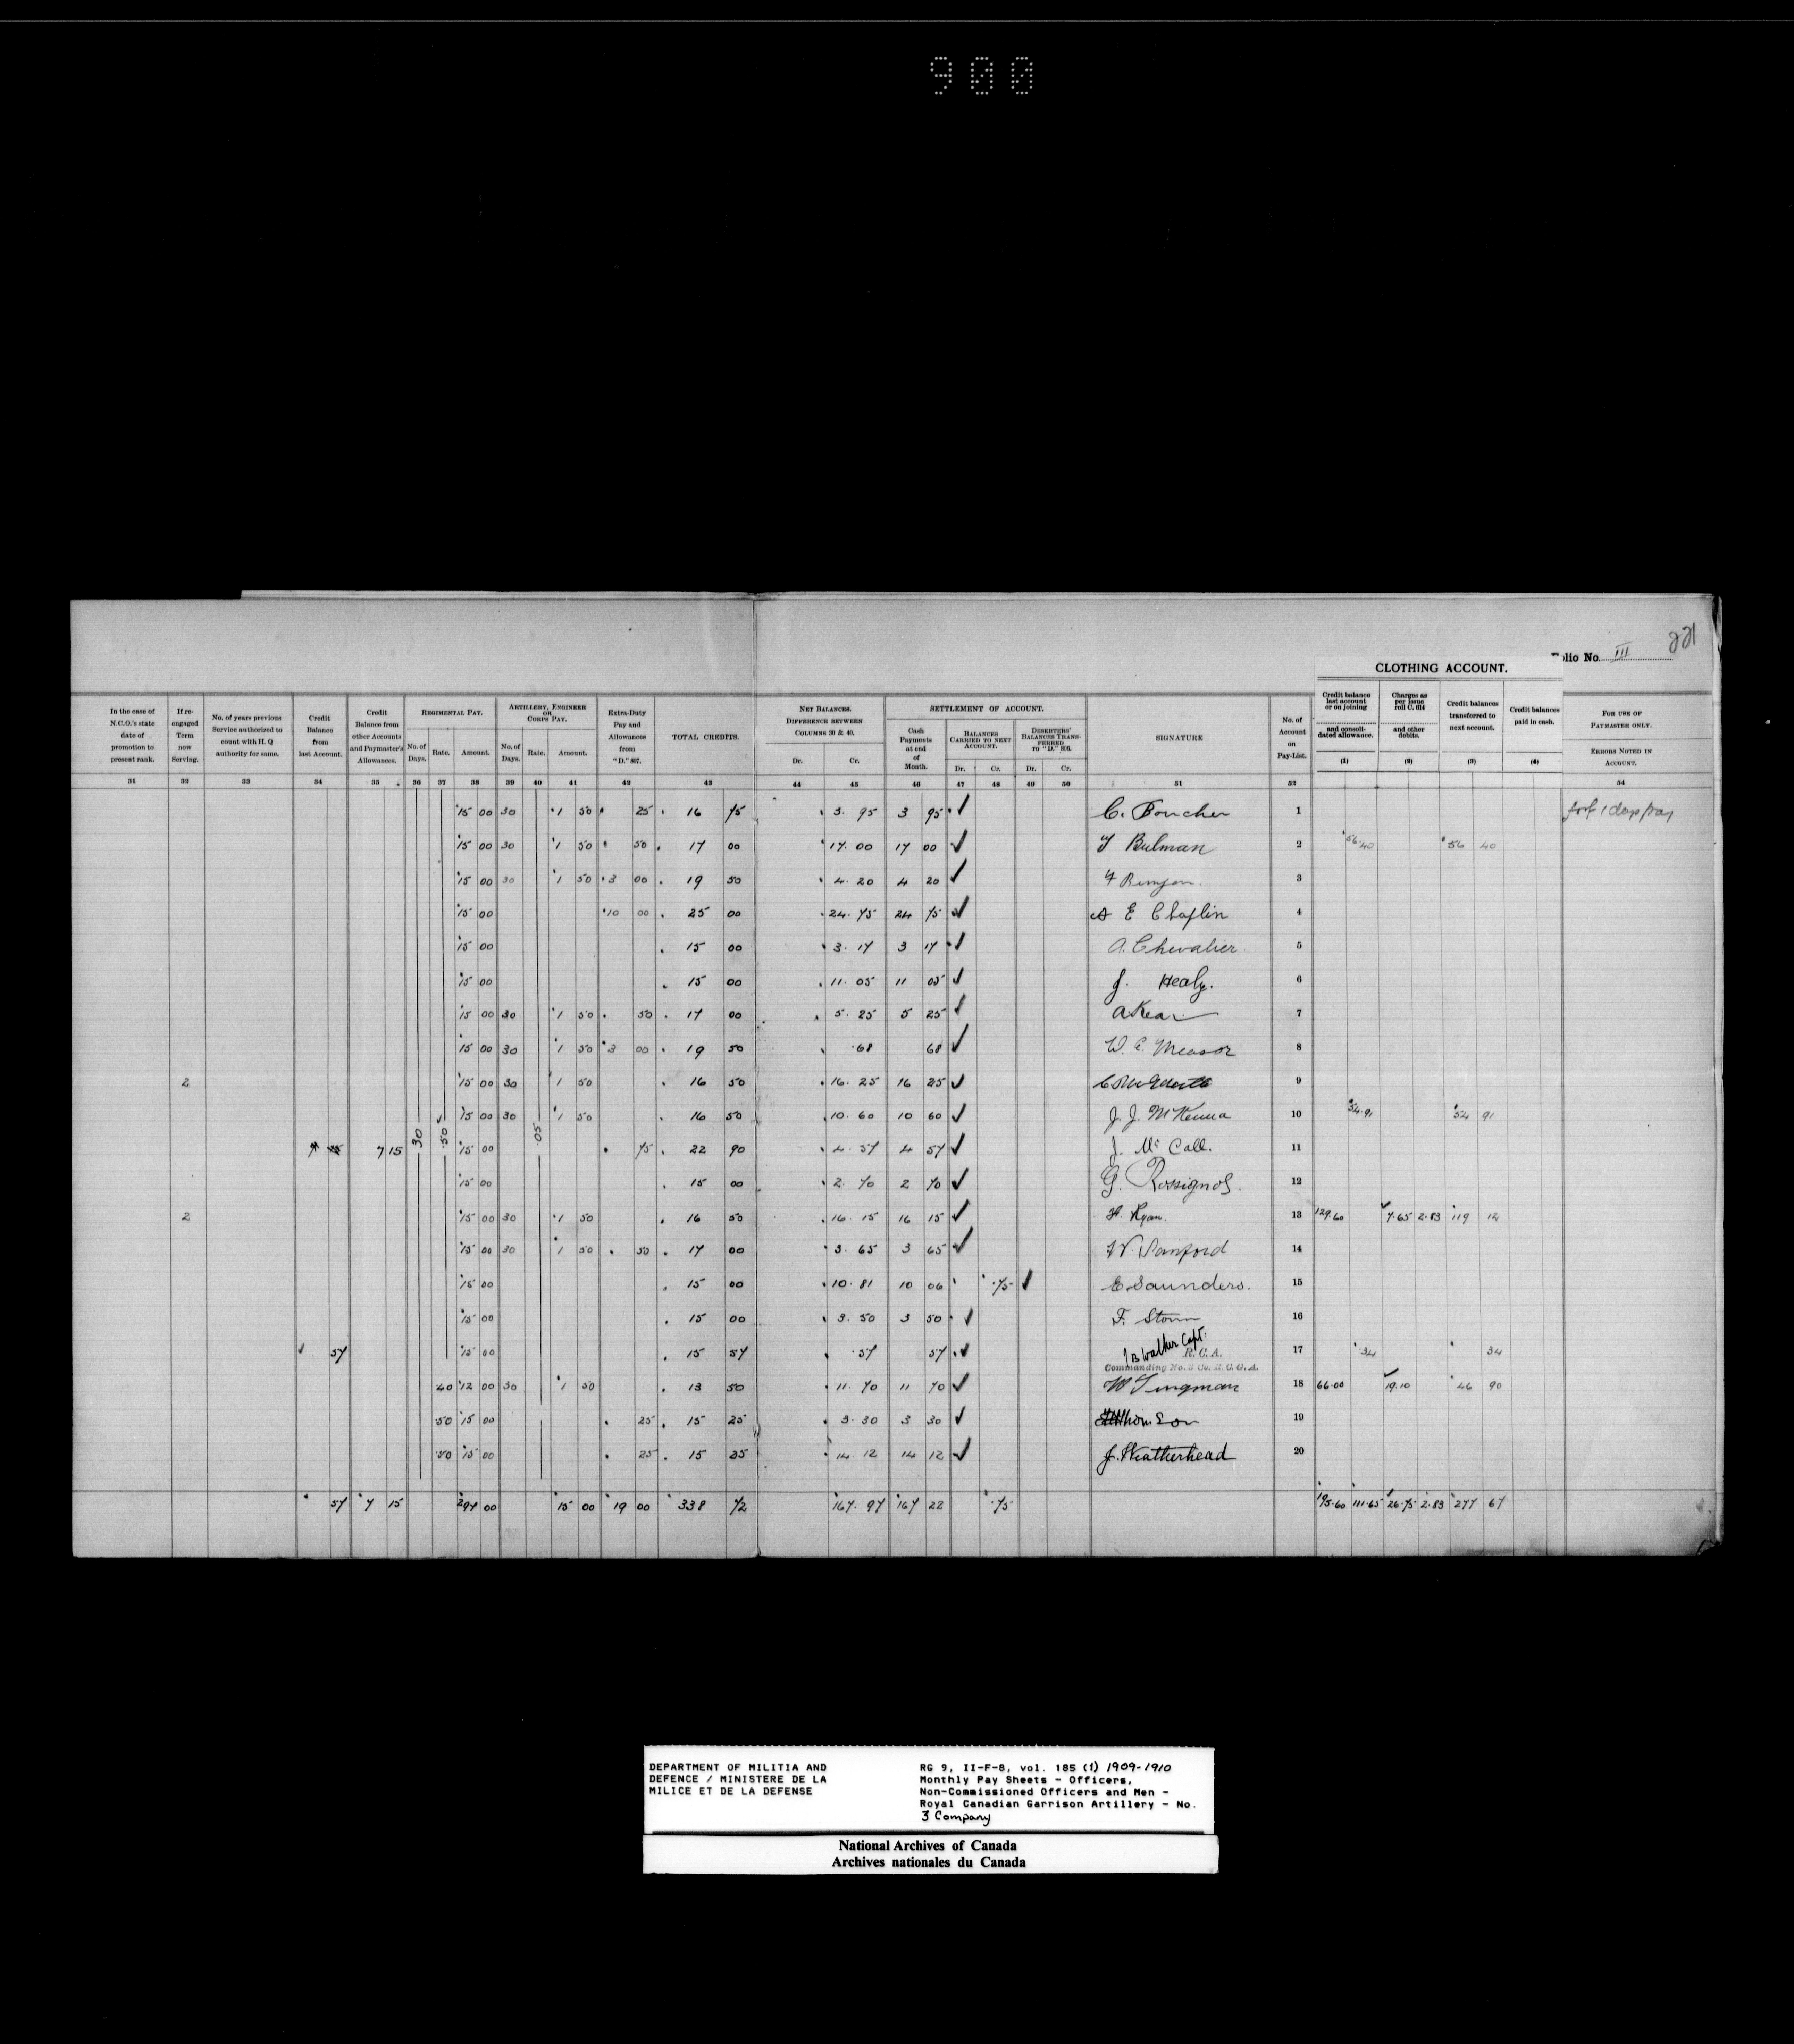 900
221
Folio No III
CLOTHING ACCOUNT.
In the case of N.C.O.'s state date of promotion to present rank.
If re-engaged Term now Serving.
No. of years previous Service authorized to count with H. Q authority for same.
Credit Balance from last Account.
Credit Balance from other Accounts and Paymaster's Allowances.
REGIMENTAL PAY.
No. of Days. Rate. Amount.
ARTILLERY, ENGINEER OR CORPS PAY.
No. of Days. Rate. Amount.
Extra-Duty Pay and Allowances from "D." 807.
TOTAL CREDITS.
NET BALANCES. DIFFERENCE BETWEEN COLUMNS 30 & 43.
Dr. Cr.
SETTLEMENT OF ACCOUNT.
Cash Payments at end of Month.
BALANCES CARRIED TO NEXT ACCOUNT.
Dr. Cr.
DESERTERS' BALANCES TRANSFERRED TO "D." 806.
Dr. Cr.
SIGNATURE
No. of Account on Pay-List.
Credit balance last account or on joining and consolidated allowance. (1)
Charges as per issue roll C. 614 and other debits. (2)
Credit balances transferred to next account. (3)
Credit balances paid in cash. (4)
FOR USE OF PAYMASTER ONLY.
ERRORS NOTED IN ACCOUNT.
31 32 33 34 35 36 37 38 39 40 41 42 43 44 45 46 47 48 49 50 51 52 54
30 .50 .05
15 00 30 1 50 25 16 75 3. 95 3 95 ✓ C. Boucher 1 forf 1 days pay
15 00 30 1 50 50 17 00 17. 00 17 00 ✓ Bulman 2 56.40 56 40
15 00 30 1 50 3 00 19 50 4. 20 4 20 ✓ 3
15 00 10 00 25 00 24. 75 24 75 ✓ A E Chaplin 4
15 00 15 00 3. 17 3 17 ✓ A. Chevalier. 5
15 00 15 00 11. 05 11 05 ✓ J. Healy. 6
15 00 30 1 50 50 17 00 5. 25 5 25 ✓ A Kear 7
15 00 30 1 50 3 00 19 50 .68 68 ✓ W. E. Measor 8
2 15 00 30 1 50 16 50 16. 25 16 25 ✓ 9
15 00 30 1 50 16 50 10. 60 10 60 ✓ J. J. McKenna 10 54.91 54 91
7 15 15 00 75 22 90 4. 57 4 57 ✓ J. Mc Call. 11
15 00 15 00 2. 70 2 70 ✓ G. Rossignol. 12
2 15 00 30 1 50 16 50 16. 15 16 15 ✓ H. Ryan. 13 129.60 7.65 2.83 119 12
15 00 30 1 50 50 17 00 3. 65 3 65 ✓ W. Sanford 14
15 00 15 00 10. 81 10 06 .75 ✓ E. Saunders. 15
15 00 15 00 3. 50 3 50 ✓ F. Storm 16
57 15 00 15 57 .57 57 ✓ J B Walker Capt. R. C. A. 17 .34 34
Commanding No. 3 Co. R. C. G. A.
.40 12 00 30 1 50 13 50 11. 70 11 70 ✓ W Tingman 18 66.00 19.10 46 90
.50 15 00 25 15 25 3. 30 3 30 ✓ Thomson 19
.50 15 00 25 15 25 14. 12 14 12 ✓ J. Weatherhead 20
57 7 15 297 00 15 00 19 00 338 72 167. 97 167 22 .75 195.60 111.65 26.75 2.83 277 67
DEPARTMENT OF MILITIA AND
DEFENCE / MINISTERE DE LA
MILICE ET DE LA DEFENSE
RG 9, II-F-8, vol. 185 (1) 1909-1910
Monthly Pay Sheets - Officers,
Non-Commissioned Officers and Men -
Royal Canadian Garrison Artillery - No.
3 Company
National Archives of Canada
Archives nationales du Canada